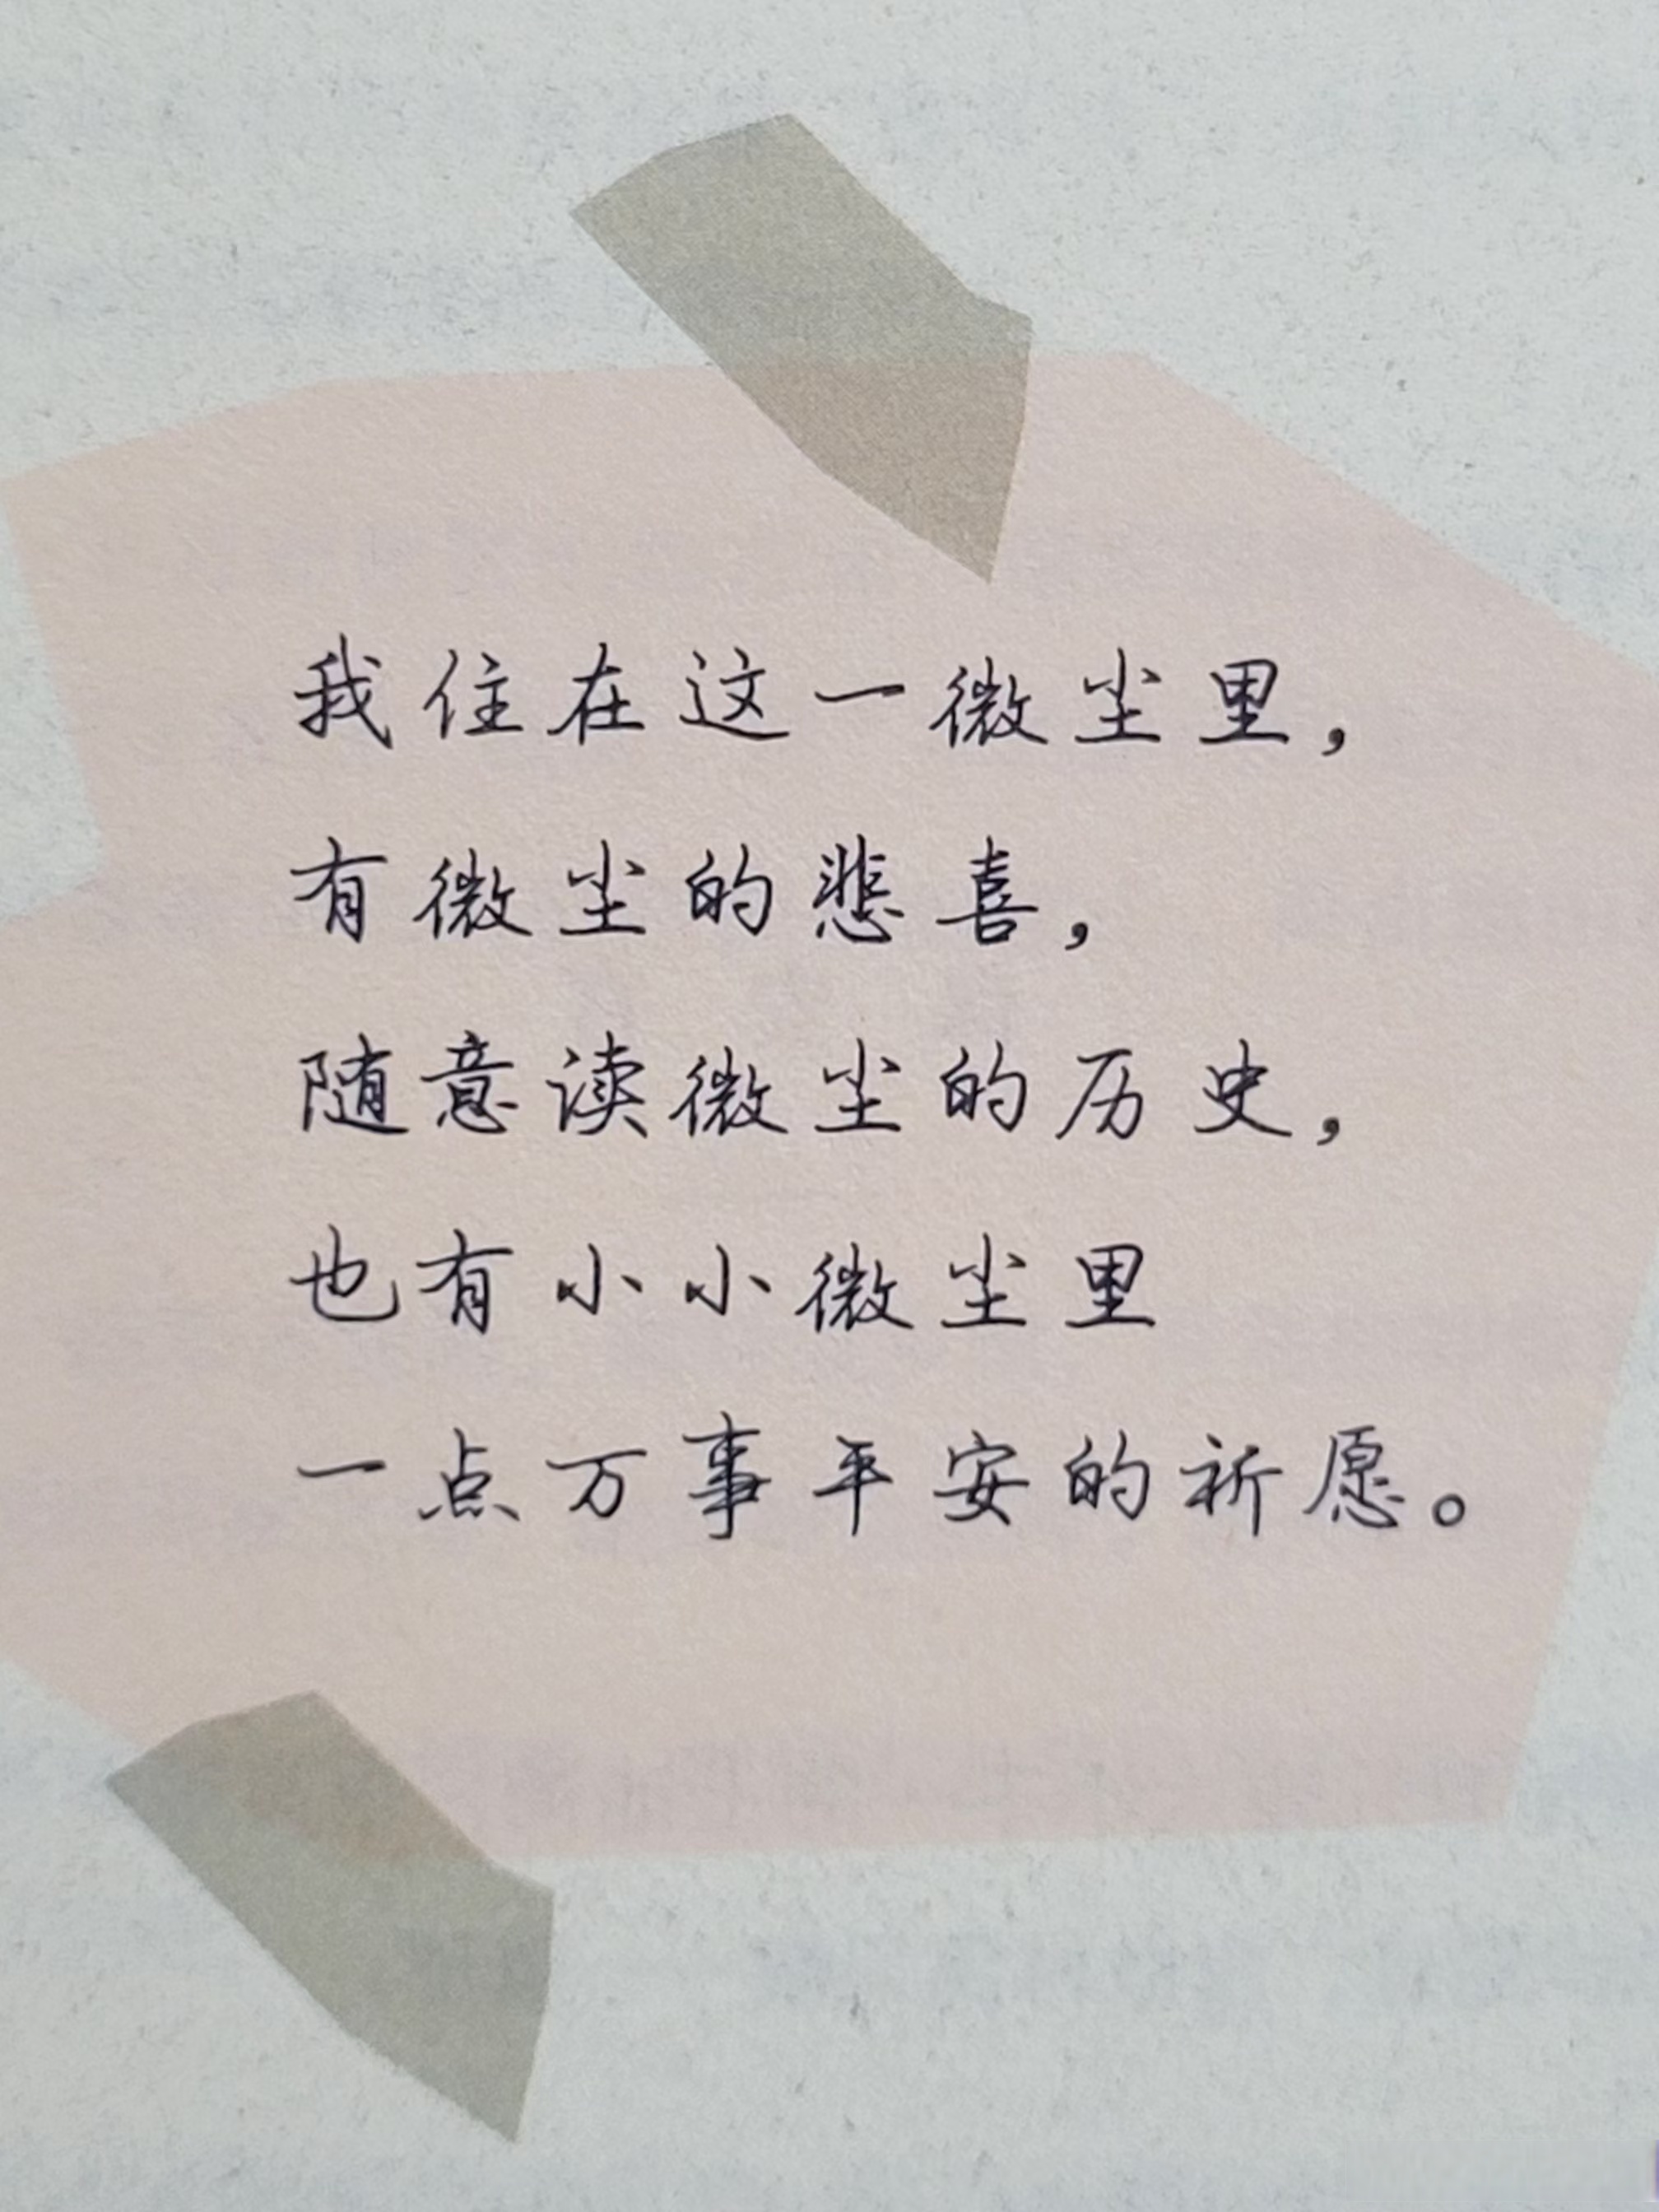 我住在这一微尘里，
有微尘的悲喜，
随意读微尘的历史，
也有小小微尘里
一点万事平安的祈愿。